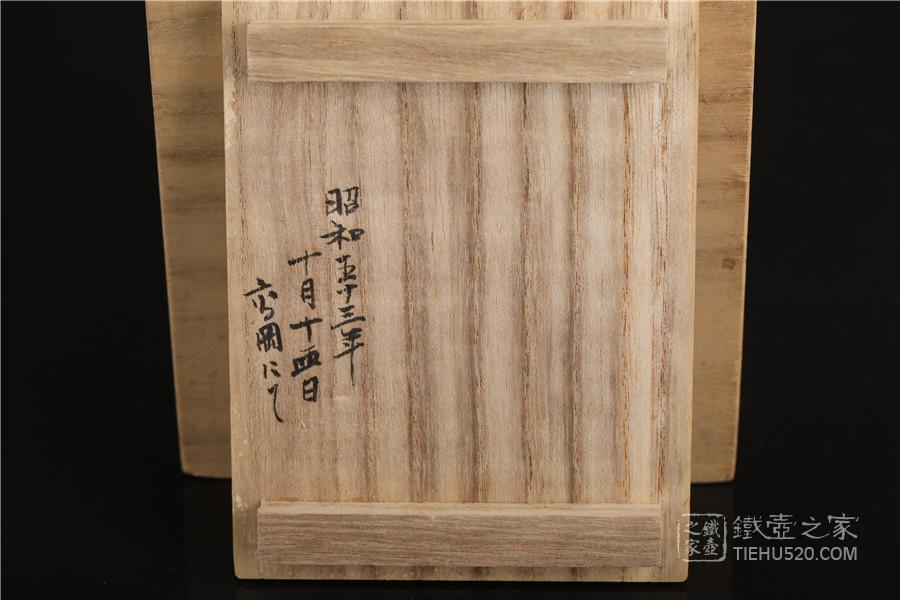 昭和五十三年
十月十四日
高岡にて
鐵壺之家
鐵壺之家
TIEHU520.COM